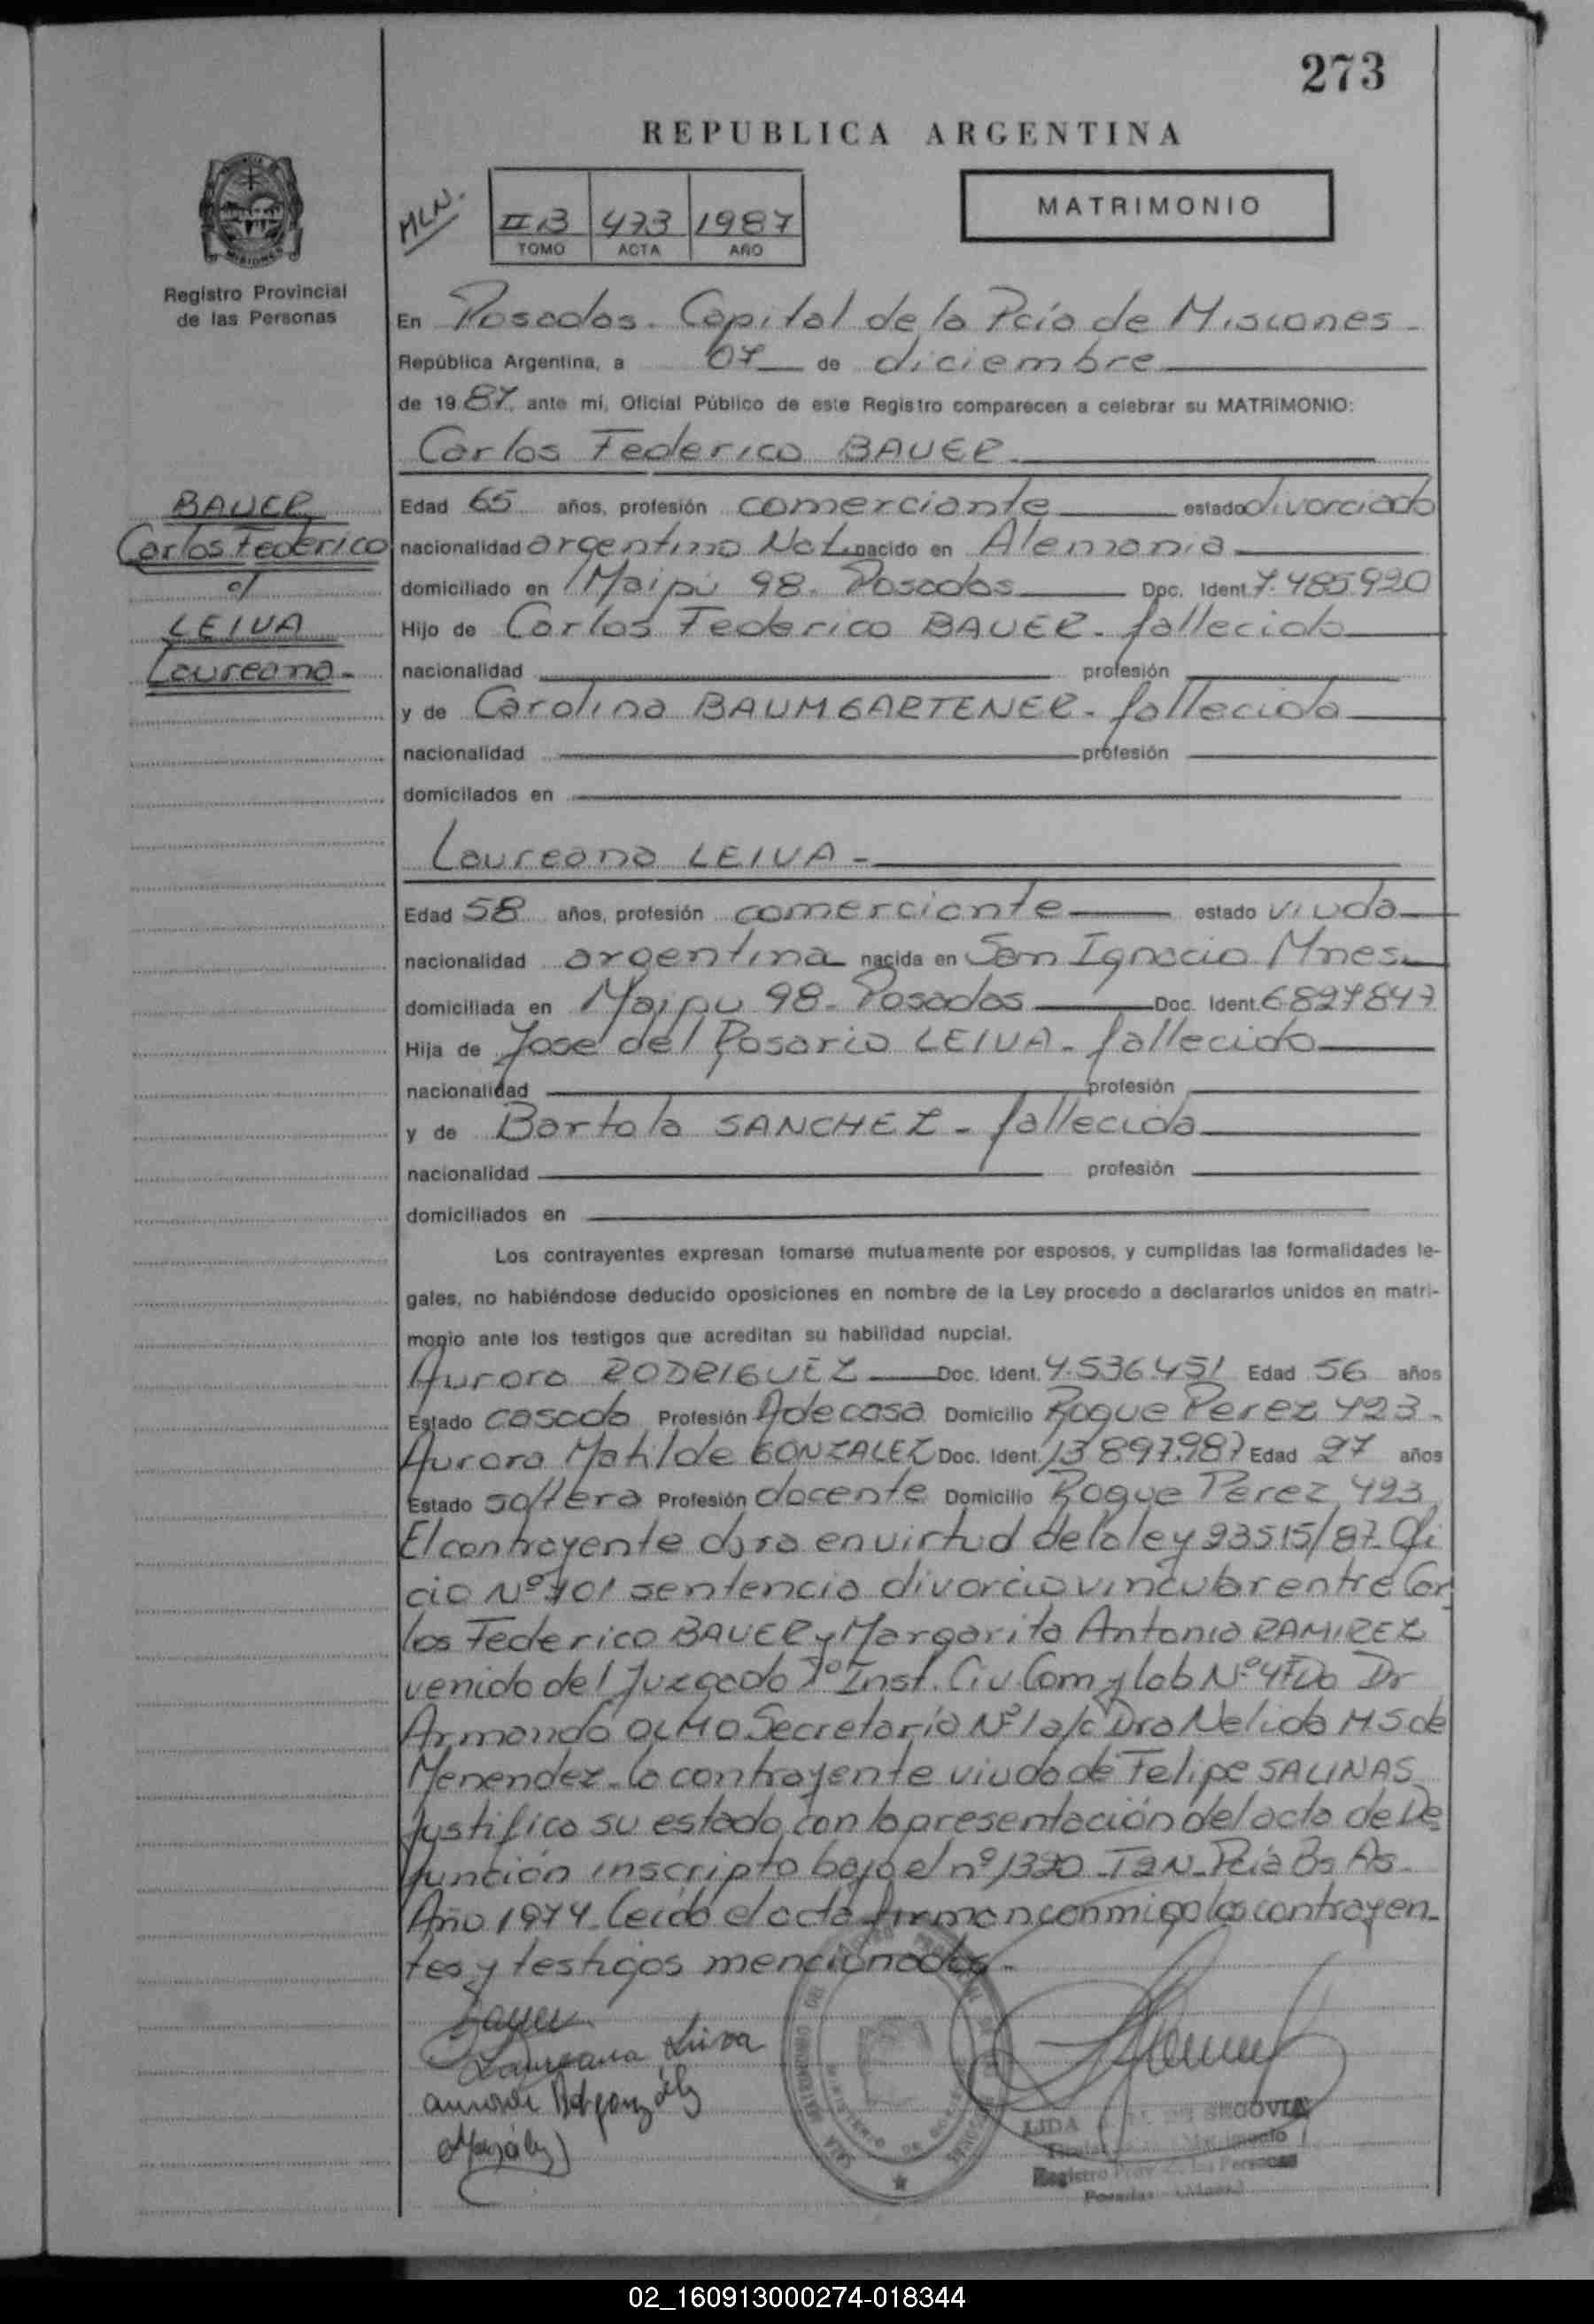 273
REPUBLICA ARGENTINA
MLN.
II B 473 1987
TOMO ACTA AÑO
MATRIMONIO
MISIONES
Registro Provincial
de las Personas
En Posadas. Capital de la Pcia de Misiones
República Argentina, a 07 de diciembre
de 1987, ante mí, Oficial Público de este Registro comparecen a celebrar su MATRIMONIO:
Carlos Federico BAUER
BAUER
Carlos Federico
c/
LEIVA
Laureana
Edad 65 años, profesión comerciante estado divorciado
nacionalidad argentino Nat. nacido en Alemania
domiciliado en Maipú 98. Posadas Doc. Ident. 7.485.920
Hijo de Carlos Federico BAUER - fallecido
nacionalidad profesión
y de Carolina BAUMGARTENER - fallecida
nacionalidad profesión
domiciliados en
Laureana LEIVA -
Edad 58 años, profesión comerciante estado viuda
nacionalidad argentina nacida en San Ignacio Mnes
domiciliada en Maipu 98 - Posadas Doc. Ident. 6827847
Hija de Jose del Rosario LEIVA - fallecido
nacionalidad profesión
y de Bartola SANCHEZ - fallecida
nacionalidad profesión
domiciliados en
Los contrayentes expresan tomarse mutuamente por esposos, y cumplidas las formalidades le-
gales, no habiéndose deducido oposiciones en nombre de la Ley procedo a declararlos unidos en matri-
monio ante los testigos que acreditan su habilidad nupcial.
Aurora RODRIGUEZ Doc. Ident. 4.536.451 Edad 56 años
Estado casada Profesión Adecasa Domicilio Roque Perez 423 -
Aurora Matilde GONZALEZ Doc. Ident. 13897.987 Edad 27 años
Estado soltera Profesión docente Domicilio Roque Perez 423
El contrayente en virtud de la ley 23515/87. Ofi
cio Nº 701 sentencia divorcio vincular entre Car
los Federico BAUER y Margarita Antonia RAMIREZ
venido del Juzgado 1º Inst. Civ. Com y lab Nº 4 Fdo Dr
Armando OLMO Secretaría Nº 1 a/c Dra Nelida M S de
Menendez - la contrayente viuda de Felipe SALINAS
Justifica su estado con la presentación del acta de De
función inscripto bajo el nº 1320 - T2N - Pcia Bs As -
Año 1974 - Leída el acta firman conmigo los contrayen-
tes y testigos mencionados -
Bauer
Laureana Leiva
LIDA DE SEGOVIA
Registro Prov. de las Personas
Posadas (Mnes.)
02_160913000274-018344